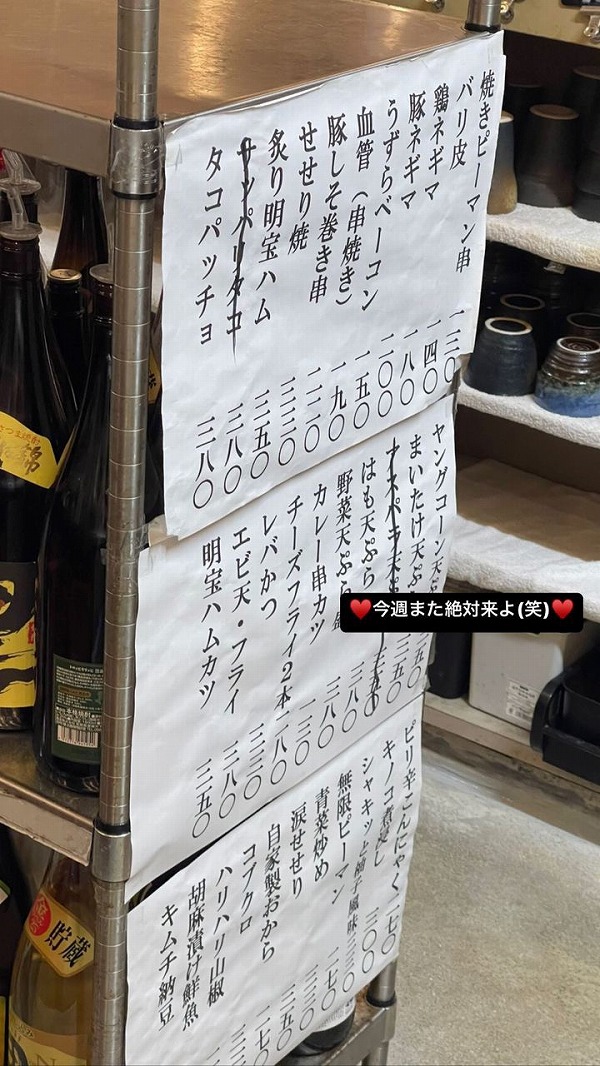 焼きピーマン串 一三〇
バリ皮 一四〇
鶏ネギマ 一八〇
豚ネギマ 二〇〇
うずらベーコン 一五〇
血管（串焼き） 一九〇
豚しそ巻き串
せせり焼
炙り明宝ハム 二五〇
サッパリタコ 二八〇
タコパッチョ 三八〇
ヤングコーン天ぷ
まいたけ天ぷ 三五〇
ナスパラ天
はも天ぷら 三八〇
野菜天ぷら盛
カレー串カツ
チーズフライ2本 二八〇
レバかつ
エビ天・フライ 三八〇
明宝ハムカツ 三五〇
♥今週また絶対来よ(笑)♥
ピリ辛こんにゃく 一七〇
キノコ煮浸し 三〇〇
シャキッと柚子風味
無限ピーマン 一七〇
青菜炒め
涙せせり
自家製おから
コブクロ
ハリハリ山椒
胡麻漬け鮮魚
キムチ納豆
貯蔵